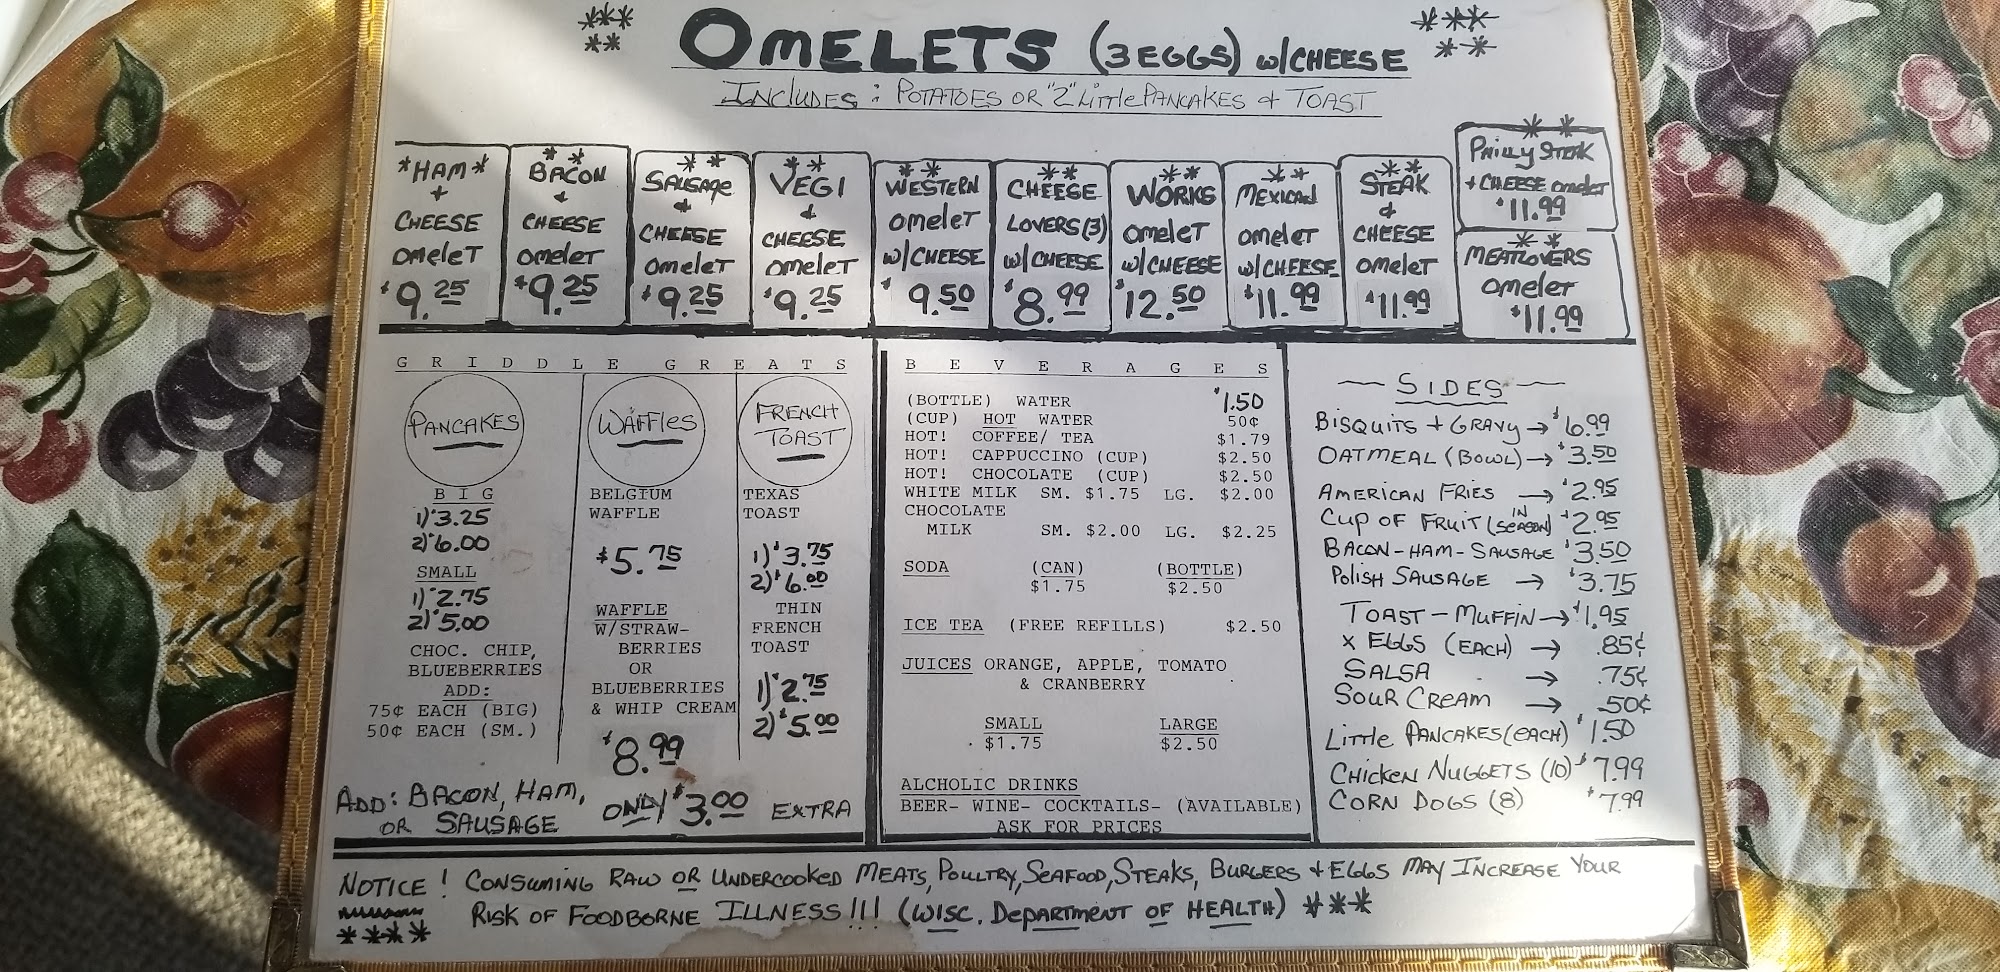 *** OMELETS (3 EGGS) w/CHEESE ***
** **
INCLUDES: POTATOES OR "2" LITTLE PANCAKES & TOAST
*HAM*
&
CHEESE
OMELET
$9.25
* *
BACON
&
CHEESE
OMELET
$9.25
* *
SAUSAGE
&
CHEESE
OMELET
$9.25
* *
VEGI
&
CHEESE
OMELET
$9.25
* *
WESTERN
OMELET
w/CHEESE
$9.50
* *
CHEESE
LOVERS (3)
w/CHEESE
$8.99
* *
WORKS
OMELET
w/CHEESE
$12.50
* *
MEXICAN
OMELET
w/CHEESE
$11.99
* *
STEAK
&
CHEESE
OMELET
$11.99
* *
PHILLY STEAK
& CHEESE OMELET
$11.99
* *
MEATLOVERS
OMELET
$11.99
GRIDDLE GREATS
PANCAKES
BIG
1) $3.25
2) $6.00
SMALL
1) $2.75
2) $5.00
CHOC. CHIP,
BLUEBERRIES
ADD:
75¢ EACH (BIG)
50¢ EACH (SM.)
WAFFLES
BELGIUM
WAFFLE
$5.75
WAFFLE
W/STRAW-
BERRIES
OR
BLUEBERRIES
& WHIP CREAM
$8.99
FRENCH
TOAST
TEXAS
TOAST
1) $3.75
2) $6.00
THIN
FRENCH
TOAST
1) $2.75
2) $5.00
ADD: BACON, HAM,
OR SAUSAGE ONLY $3.00 EXTRA
BEVERAGES
(BOTTLE) WATER $1.50
(CUP) HOT WATER 50¢
HOT! COFFEE/ TEA $1.79
HOT! CAPPUCCINO (CUP) $2.50
HOT! CHOCOLATE (CUP) $2.50
WHITE MILK SM. $1.75 LG. $2.00
CHOCOLATE
MILK SM. $2.00 LG. $2.25
SODA (CAN) (BOTTLE)
$1.75 $2.50
ICE TEA (FREE REFILLS) $2.50
JUICES ORANGE, APPLE, TOMATO
& CRANBERRY
SMALL LARGE
$1.75 $2.50
ALCHOLIC DRINKS
BEER- WINE- COCKTAILS- (AVAILABLE)
ASK FOR PRICES
SIDES
BISQUITS & GRAVY → $6.99
OATMEAL (BOWL) → $3.50
AMERICAN FRIES → $2.95
CUP OF FRUIT (IN SEASON) $2.95
BACON-HAM-SAUSAGE $3.50
POLISH SAUSAGE → $3.75
TOAST-MUFFIN → $1.95
X EGGS (EACH) → .85¢
SALSA → .75¢
SOUR CREAM → .50¢
LITTLE PANCAKES (EACH) $1.50
CHICKEN NUGGETS (10) $7.99
CORN DOGS (8) $7.99
NOTICE! CONSUMING RAW OR UNDERCOOKED MEATS, POULTRY, SEAFOOD, STEAKS, BURGERS & EGGS MAY INCREASE YOUR
**** RISK OF FOODBORNE ILLNESS!!! (WISC. DEPARTMENT OF HEALTH) ***